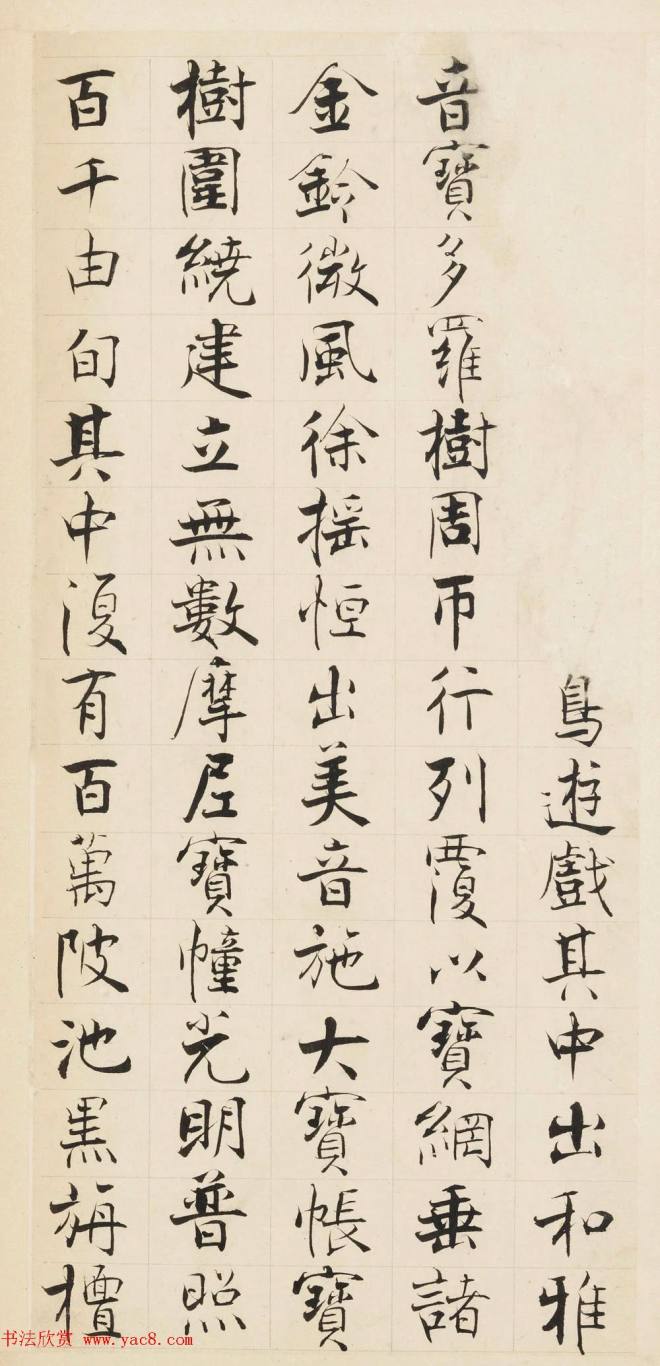 鳥遊戲其中出和雅
音寶多羅樹周帀行列覆以寶網垂諸
金鈴微風徐搖恒出美音施大寶帳寶
樹圍繞建立無數摩尼寶幢光明普照
百千由旬其中復有百萬陂池黑栴檀
书法欣赏 www.yac8.com